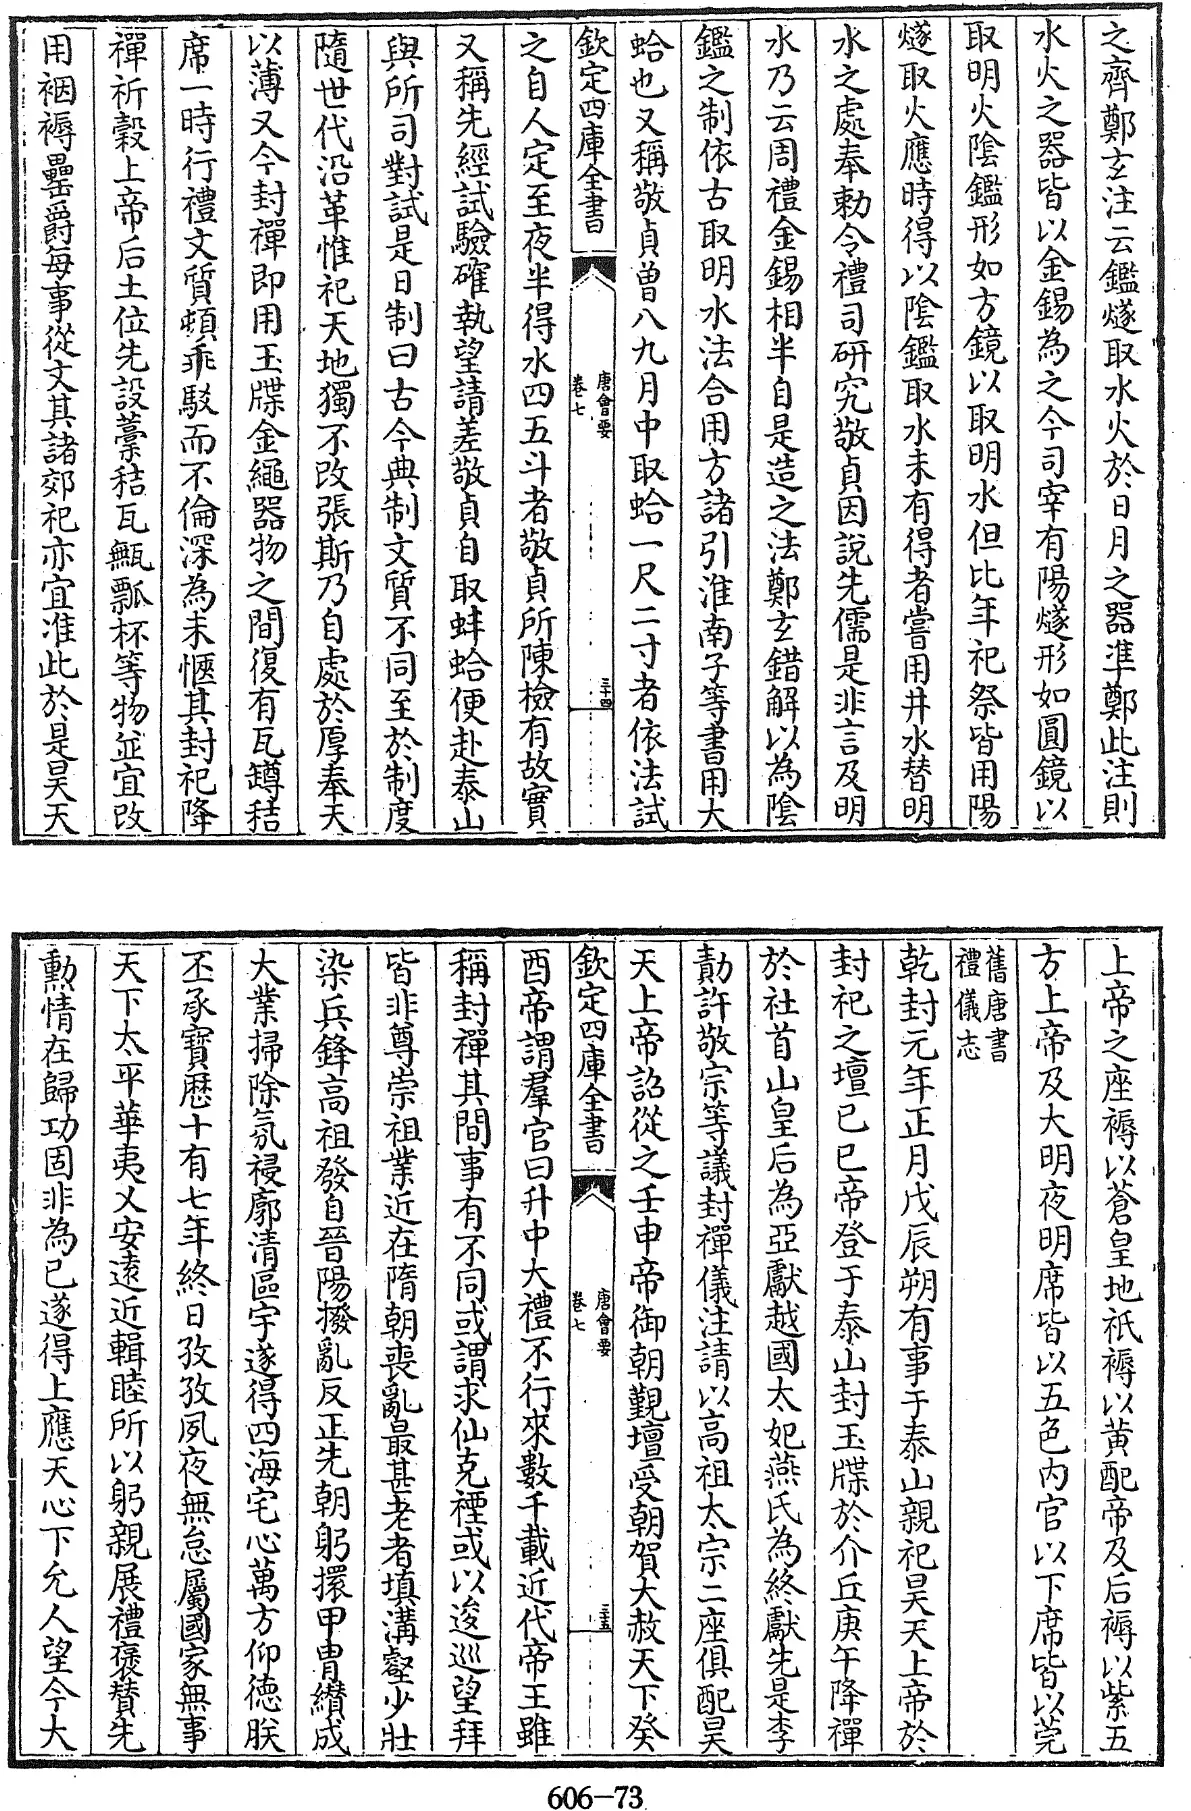 之齊鄭玄注云鑑燧取水火於日月之器準鄭此注則
水火之器皆以金錫為之今司宰有陽燧形如圓鏡以
取明火陰鑑形如方鏡以取明水但比年祀祭皆用陽
燧取火應時得以陰鑑取水未有得者嘗用井水替明
水之處奉勅令禮司研究敬貞因說先儒是非言及明
水乃云周禮金錫相半自是造之法鄭玄錯解以為陰
鑑之制依古取明水法合用方諸引淮南子等書用大
蛤也又稱敬貞曽八九月中取蛤一尺二寸者依法試
欽定四庫全書
唐會要
卷七
三十四
之自人定至夜半得水四五斗者敬貞所陳檢有故實
又稱先經試驗確執望請差敬貞自取蚌蛤便赴泰山
與所司對試是日制曰古今典制文質不同至於制度
隨世代沿革惟祀天地獨不改張斯乃自處於厚奉天
以薄又今封禪即用玉牒金繩器物之間復有瓦罇秸
席一時行禮文質頓乖駁而不倫深為未愜其封祀降
禪祈穀上帝后土位先設藁秸瓦甒瓢杯等物並宜改
用裀褥罍爵每事從文其諸郊祀亦宜准此於是昊天
上帝之座褥以蒼皇地祇褥以黄配帝及后褥以紫五
方上帝及大明夜明席皆以五色内官以下席皆以莞
舊唐書
禮儀志
乾封元年正月戊辰朔有事于泰山親祀昊天上帝於
封祀之壇已巳帝登于泰山封玉牒於介丘庚午降禪
於社首山皇后為亞獻越國太妃燕氏為終獻先是李
勣許敬宗等議封禪儀注請以高祖太宗二座俱配昊
天上帝詔從之壬申帝御朝覲壇受朝賀大赦天下癸
欽定四庫全書
唐會要
卷七
三十五
酉帝謂羣官曰升中大禮不行來數千載近代帝王雖
稱封禪其間事有不同或謂求仙克禋或以逡巡望拜
皆非尊崇祖業近在隋朝喪亂最甚老者填溝壑少壯
染兵鋒高祖發自晉陽撥亂反正先朝躬擐甲胄纘成
大業掃除氛祲廓清區宇遂得四海宅心萬方仰德朕
丕承寶歴十有七年終日孜孜夙夜無怠屬國家無事
天下太平華夷乂安遠近輯睦所以躬親展禮褒賛先
勲情在歸功固非為已遂得上應天心下允人望今大
606-73